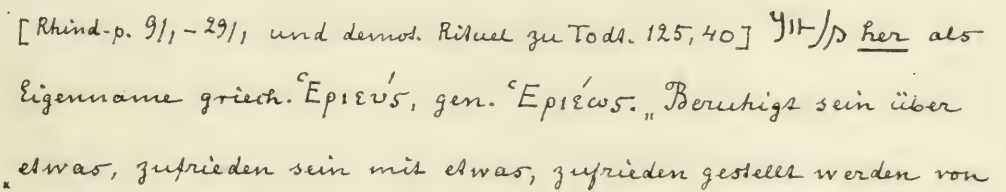 [Rhind-p. 9/, - 29/, und demot. Rituel zu Todt. 125,40] her als
Eigenname griech. Ἑριεύς, gen. Ἑριέως. „Beruhigt sein über
etwas, zufrieden sein mit etwas, zufrieden gestellt werden von